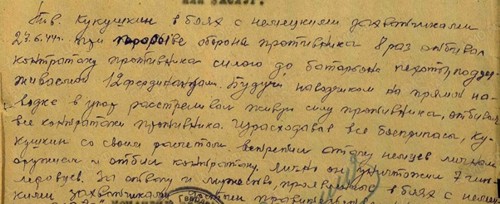 Тов. Кукушкин в боях с немецкими захватчиками
27.6.44г. при прорыве оборона противника 8 раз отбивал
контратаку противника силою до батальона пехоты поддер
живаемой 12 фердинандам. Будучи наводчиком по прямой на-
водке в упор расстреливал живую силу противника, отбивал
все контратаки противника. Израсходовав все боеприпасы, Ку-
кушкин со своим расчетом встретил атаку немцев личным
оружием и отбил контратаку. Лично он уничтожил 7 гит-
леровцев. За отвагу и мужество, проявленное в боях с немец
кими захватчиками